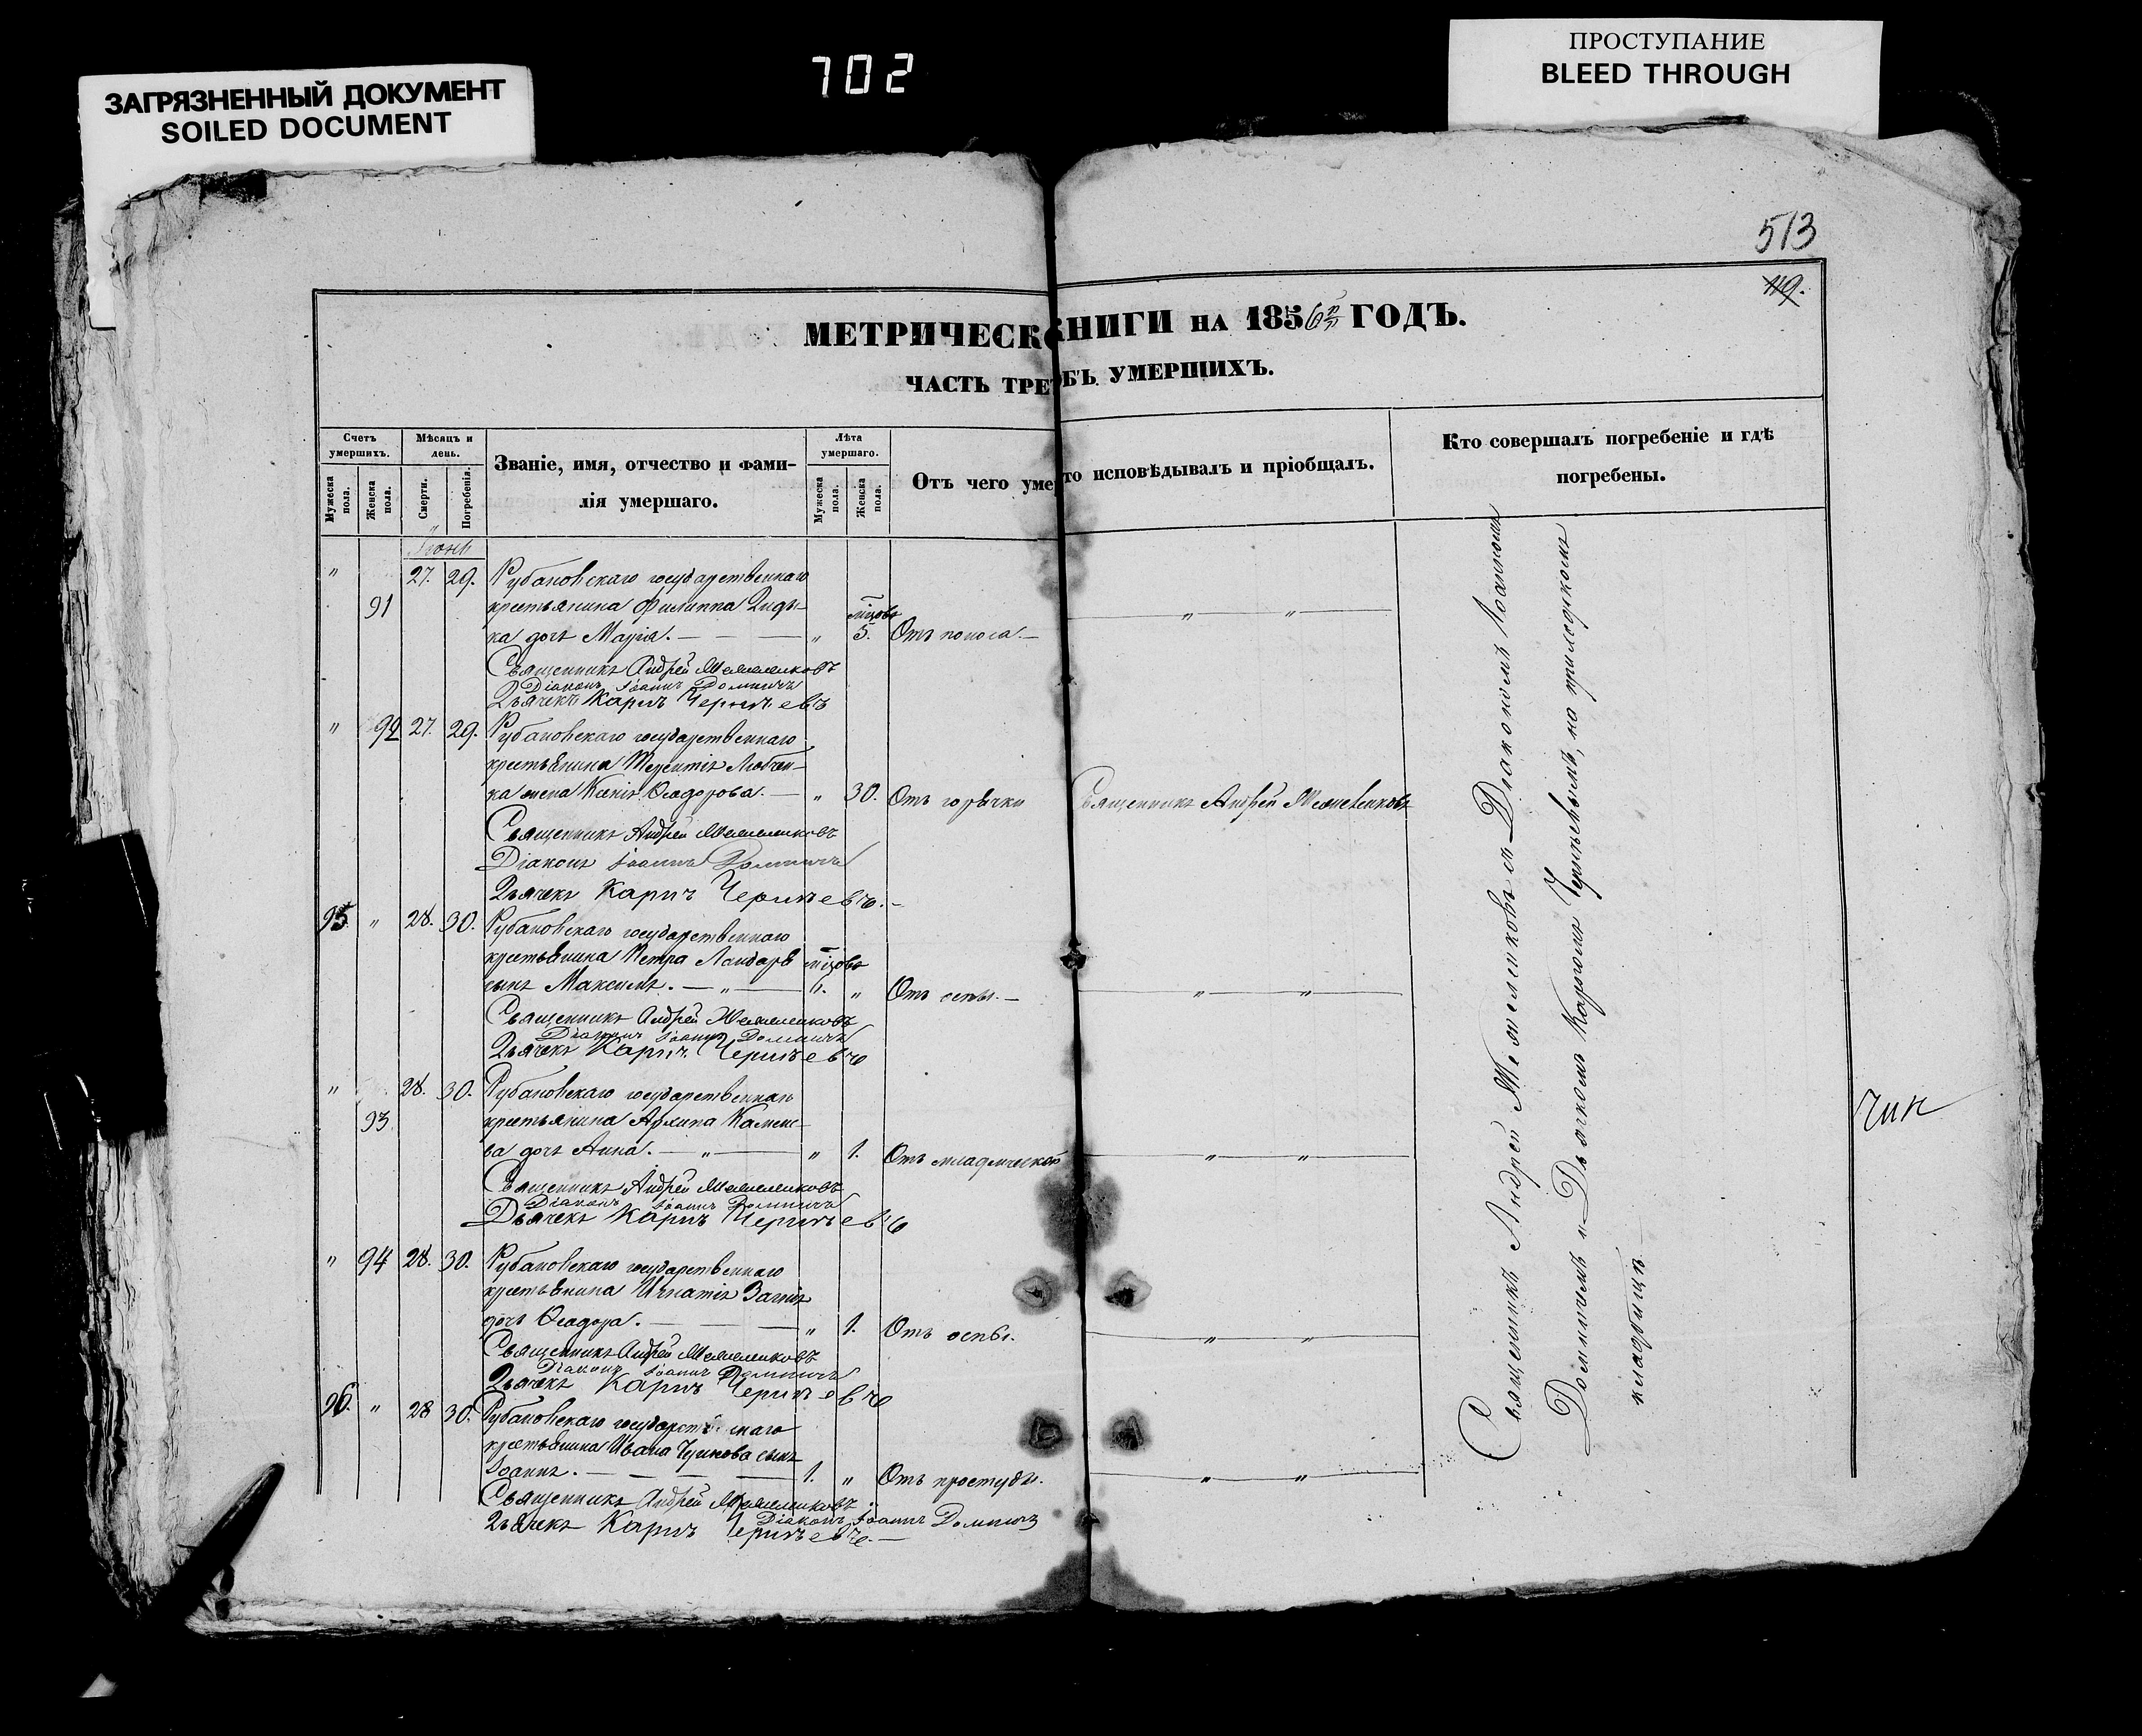 ЗАГРЯЗНЕННЫЙ ДОКУМЕНТ
SOILED DOCUMENT
702
ПРОСТУПАНИЕ
BLEED THROUGH
513
119.
МЕТРИЧЕСК КНИГИ НА 1856 ГОДЪ.
ЧАСТЬ ТРЕ ОБЪ УМЕРШИХЪ.
Счетъ умершихъ.
Мужеска пола.
Женска пола.
Мѣсяцъ и день.
Смерти.
Погребенія.
Званіе, имя, отчество и фами-
лія умершаго.
Лѣта умершаго.
Мужеска пола.
Женска пола.
Отъ чего умер
то исповѣдывалъ и пріобщалъ.
Кто совершалъ погребеніе и гдѣ
погребены.
Іюнь
" 27. 29. Рубановскаго государственнаго
91 крестьянина Филиппа мцовъ
ка дочь Марія. — — — " 5. Отъ поноса. — " "
Священникъ Андрей
Діаконъ Іоаннъ Доминичъ
Дьячекъ Карпъ
" 92 27. 29. Рубановскаго государственнаго
крестьянина Терентія Любчен-
ка жена Ксенія Ѳеодорова. — " 30. Отъ горячки Священникъ Андрей
Священникъ Андрей
Діаконъ Іоаннъ Доминичъ
Дьячекъ Карпъ
95. " 28. 30. Рубановскаго государственнаго
крестьянина Петра мцовъ
сынъ Максимъ. — " — " Отъ оспы. — " "
Священникъ Андрей
Діаконъ Іоаннъ Доминичъ
Дьячекъ Карпъ
" 28. 30. Рубановскаго государственнаго
93 крестьянина Архипа Камене-
ва дочь Анна. — " — " 1. Отъ младенческой " "
Священникъ Андрей
Діаконъ Іоаннъ Доминичъ
Дьячекъ Карпъ
" 94 28. 30. Рубановскаго государственнаго
крестьянина Игнатія
дочь Ѳеодора. — — " 1. Отъ оспы. " "
Священникъ Андрей
Діаконъ Іоаннъ Доминичъ
Дьячекъ Карпъ
96. " 28 30. Рубановскаго государственнаго
крестьянина Ивана сынъ
Іоаннъ. — — — — 1. " Отъ простуды. " "
Священникъ Андрей
Діаконъ Іоаннъ Доминичъ
Дьячекъ Карпъ
Священникъ Андрей съ Діакономъ Іоанномъ
Доминичемъ и Дьячкомъ Карпомъ на приходскомъ
кладбищѣ. —